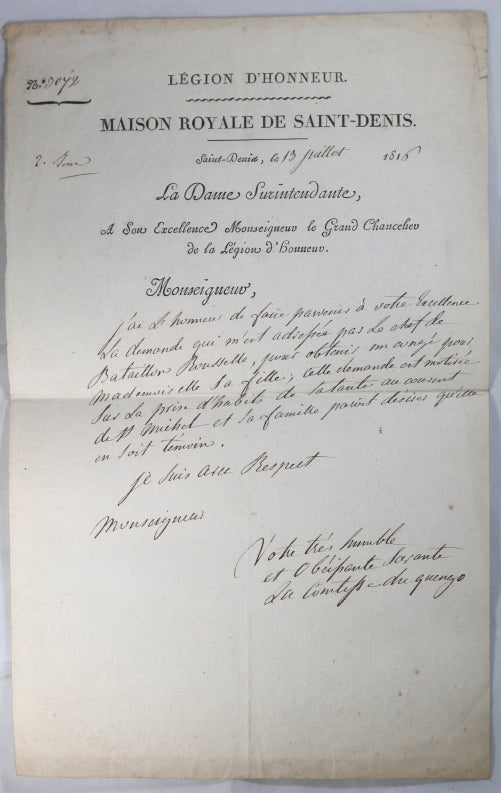 N.° 3072
LÉGION D'HONNEUR.
MAISON ROYALE DE SAINT-DENIS.
2.
Saint-Denis, le 13 juillet 1816
La Dame Surintendante,
A Son Excellence Monseigneur le Grand Chancelier
de la Légion d'Honneur.
Monseigneur,
j'ai l'honneur de faire parvenir à votre Excellence
La demande qui m'est adressée par Le chef de
Bataillon Rousselle, pour obtenir un congé pour
Mademoiselle sa fille; cette demande est motivée
sur La prise d'habits de sa tante au couvent
de St Michel et sa famille parait desirer qu'elle
en soit témoin.
je suis avec Respect
Monseigneur
Votre très humble
et Obéissante servante
La Comtesse du quengo